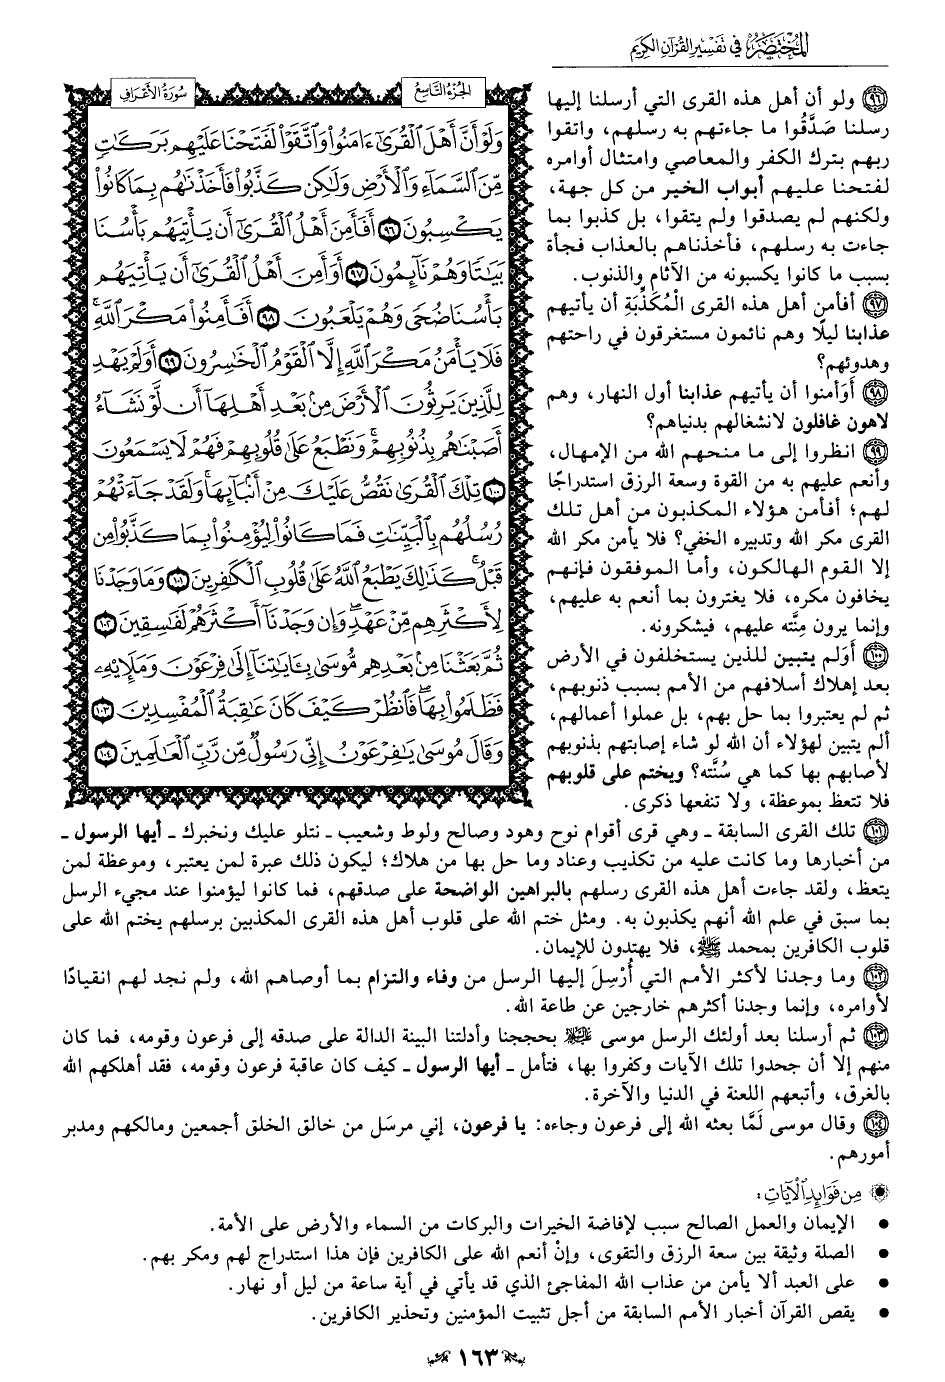 المختصر في تفسير القرآن الكريم
الجزء التاسع
سورة الأعراف
وَلَوْ أَنَّ أَهْلَ ٱلْقُرَىٰٓ ءَامَنُوا۟ وَٱتَّقَوْا۟ لَفَتَحْنَا عَلَيْهِم بَرَكَٰتٍ
مِّنَ ٱلسَّمَآءِ وَٱلْأَرْضِ وَلَٰكِن كَذَّبُوا۟ فَأَخَذْنَٰهُم بِمَا كَانُوا۟
يَكْسِبُونَ ٩٦ أَفَأَمِنَ أَهْلُ ٱلْقُرَىٰٓ أَن يَأْتِيَهُم بَأْسُنَا
بَيَٰتًا وَهُمْ نَآئِمُونَ ٩٧ أَوَأَمِنَ أَهْلُ ٱلْقُرَىٰٓ أَن يَأْتِيَهُم
بَأْسُنَا ضُحًى وَهُمْ يَلْعَبُونَ ٩٨ أَفَأَمِنُوا۟ مَكْرَ ٱللَّهِ ۚ
فَلَا يَأْمَنُ مَكْرَ ٱللَّهِ إِلَّا ٱلْقَوْمُ ٱلْخَٰسِرُونَ ٩٩ أَوَلَمْ يَهْدِ
لِلَّذِينَ يَرِثُونَ ٱلْأَرْضَ مِنۢ بَعْدِ أَهْلِهَآ أَن لَّوْ نَشَآءُ
أَصَبْنَٰهُم بِذُنُوبِهِمْ ۚ وَنَطْبَعُ عَلَىٰ قُلُوبِهِمْ فَهُمْ لَا يَسْمَعُونَ
١٠٠ تِلْكَ ٱلْقُرَىٰ نَقُصُّ عَلَيْكَ مِنْ أَنۢبَآئِهَا ۚ وَلَقَدْ جَآءَتْهُمْ
رُسُلُهُم بِٱلْبَيِّنَٰتِ فَمَا كَانُوا۟ لِيُؤْمِنُوا۟ بِمَا كَذَّبُوا۟ مِن
قَبْلُ ۚ كَذَٰلِكَ يَطْبَعُ ٱللَّهُ عَلَىٰ قُلُوبِ ٱلْكَٰفِرِينَ ١٠١ وَمَا وَجَدْنَا
لِأَكْثَرِهِم مِّنْ عَهْدٍ ۖ وَإِن وَجَدْنَآ أَكْثَرَهُمْ لَفَٰسِقِينَ ١٠٢
ثُمَّ بَعَثْنَا مِنۢ بَعْدِهِم مُّوسَىٰ بِـَٔايَٰتِنَآ إِلَىٰ فِرْعَوْنَ وَمَلَإِي۟هِۦ
فَظَلَمُوا۟ بِهَا ۖ فَٱنظُرْ كَيْفَ كَانَ عَٰقِبَةُ ٱلْمُفْسِدِينَ ١٠٣
وَقَالَ مُوسَىٰ يَٰفِرْعَوْنُ إِنِّى رَسُولٌ مِّن رَّبِّ ٱلْعَٰلَمِينَ ١٠٤
٩٦ ولو أن أهل هذه القرى التي أرسلنا إليها
رسلنا صَدَّقُوا ما جاءتهم به رسلهم، واتقوا
ربهم بترك الكفر والمعاصي وامتثال أوامره
لفتحنا عليهم أبواب الخير من كل جهة،
ولكنهم لم يصدقوا ولم يتقوا، بل كذبوا بما
جاءت به رسلهم، فأخذناهم بالعذاب فجأة
بسبب ما كانوا يكسبونه من الآثام والذنوب.
٩٧ أفأمن أهل هذه القرى الْمُكَذِّبَةِ أن يأتيهم
عذابنا ليلًا وهم نائمون مستغرقون في راحتهم
وهدوئهم؟
٩٨ أَوَأمنوا أن يأتيهم عذابنا أول النهار، وهم
لاهون غافلون لانشغالهم بدنياهم؟
٩٩ انظروا إلى ما منحهم الله من الإمهال،
وأنعم عليهم به من القوة وسعة الرزق استدراجًا
لهم؛ أفأمن هؤلاء المكذبون من أهل تلك
القرى مكر الله وتدبيره الخفي؟ فلا يأمن مكر الله
إلا القوم الهالكون، وأما الموفقون فإنهم
يخافون مكره، فلا يغترون بما أنعم به عليهم،
وإنما يرون مِنَّته عليهم، فيشكرونه.
١٠٠ أوَلم يتبين للذين يستخلفون في الأرض
بعد إهلاك أسلافهم من الأمم بسبب ذنوبهم،
ثم لم يعتبروا بما حل بهم، بل عملوا أعمالهم،
ألم يتبين لهؤلاء أن الله لو شاء إصابتهم بذنوبهم
لأصابهم بها كما هي سُنَّته؟ ويختم على قلوبهم
فلا تتعظ بموعظة، ولا تنفعها ذكرى.
١٠١ تلك القرى السابقة ـ وهي قرى أقوام نوح وهود وصالح ولوط وشعيب ـ نتلو عليك ونخبرك ـ أيها الرسول ـ
من أخبارها وما كانت عليه من تكذيب وعناد وما حل بها من هلاك؛ ليكون ذلك عبرة لمن يعتبر، وموعظة لمن
يتعظ، ولقد جاءت أهل هذه القرى رسلهم بالبراهين الواضحة على صدقهم، فما كانوا ليؤمنوا عند مجيء الرسل
بما سبق في علم الله أنهم يكذبون به. ومثل ختم الله على قلوب أهل هذه القرى المكذبين برسلهم يختم الله على
قلوب الكافرين بمحمد ﷺ، فلا يهتدون للإيمان.
١٠٢ وما وجدنا لأكثر الأمم التي أُرْسِلَ إليها الرسل من وفاء والتزام بما أوصاهم الله، ولم نجد لهم انقيادًا
لأوامره، وإنما وجدنا أكثرهم خارجين عن طاعة الله.
١٠٣ ثم أرسلنا بعد أولئك الرسل موسى ﷺ بحججنا وأدلتنا البينة الدالة على صدقه إلى فرعون وقومه، فما كان
منهم إلا أن جحدوا تلك الآيات وكفروا بها، فتأمل ـ أيها الرسول ـ كيف كان عاقبة فرعون وقومه، فقد أهلكهم الله
بالغرق، وأتبعهم اللعنة في الدنيا والآخرة.
١٠٤ وقال موسى لَمَّا بعثه الله إلى فرعون وجاءه: يا فرعون، إني مرسَل من خالق الخلق أجمعين ومالكهم ومدبر
أمورهم.
من فوائد الآيات:
● الإيمان والعمل الصالح سبب لإفاضة الخيرات والبركات من السماء والأرض على الأمة.
● الصلة وثيقة بين سعة الرزق والتقوى، وإنْ أنعم الله على الكافرين فإن هذا استدراج لهم ومكر بهم.
● على العبد ألا يأمن من عذاب الله المفاجئ الذي قد يأتي في أية ساعة من ليل أو نهار.
● يقص القرآن أخبار الأمم السابقة من أجل تثبيت المؤمنين وتحذير الكافرين.
١٦٣